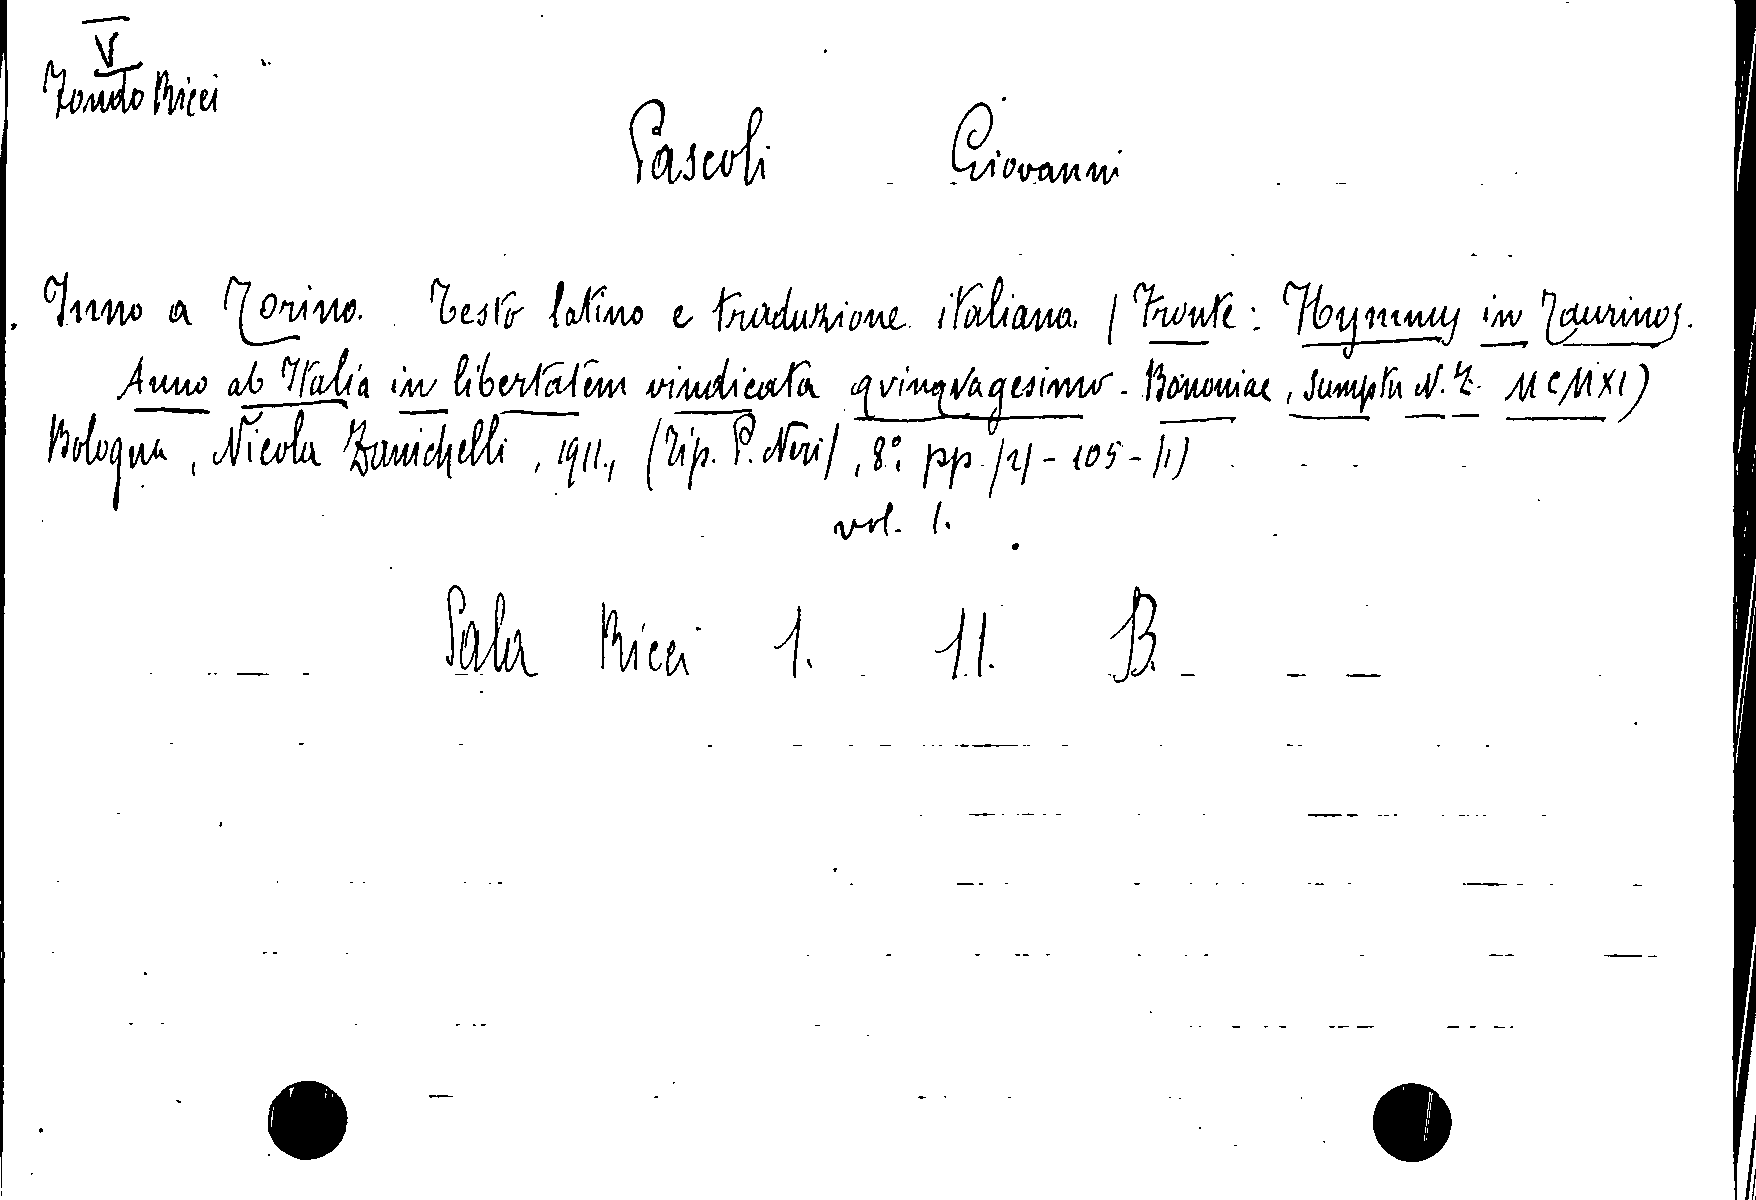 V
Fondo Ricci
Pascoli Giovanni
Inno a Torino. Testo latino e traduzione italiana. (Fronte: Hymnus in Taurinos.
Anno ab Italia in libertatem vindicata qvinqvagesimo - Bononiae, sumptu N. Z. MCMXI)
Bologna, Nicola Zanichelli, 1911., (Tip. P. Neri), 8°. pp. (2) - 105 - (1)
vol. 1.
Sala Ricci 1. 11. B.